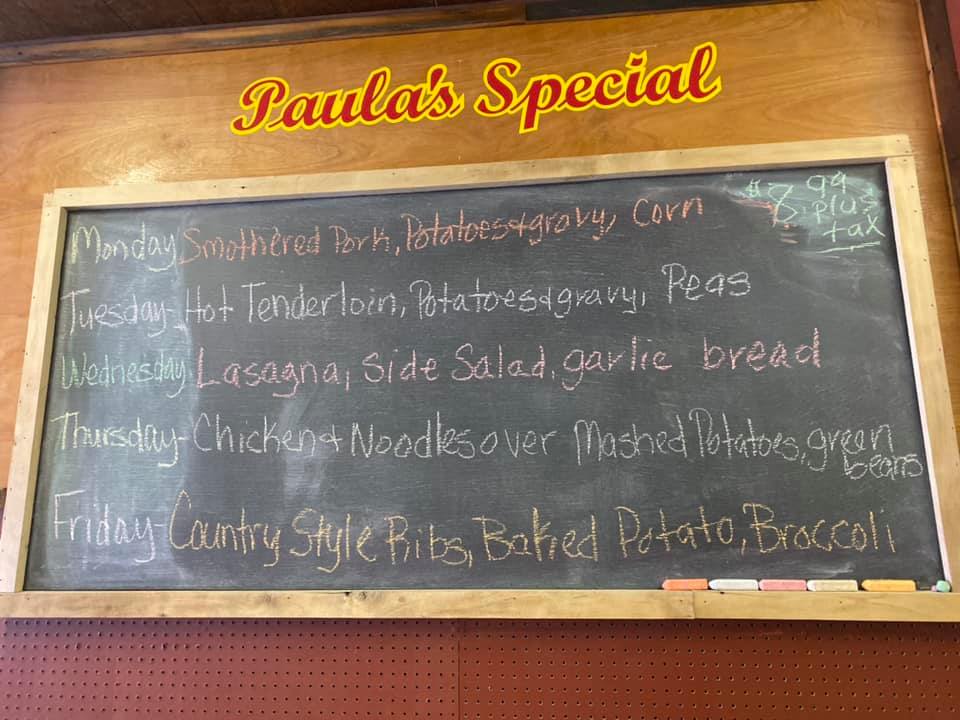 Paula's Special
$8.99 plus tax
Monday Smothered Pork, Potatoes & gravy, Corn
Tuesday- Hot Tenderloin, Potatoes & gravy, Peas
Wednesday Lasagna, Side Salad, garlic bread
Thursday- Chicken & Noodles over Mashed Potatoes, green beans
Friday- Country Style Ribs, Baked Potato, Broccoli